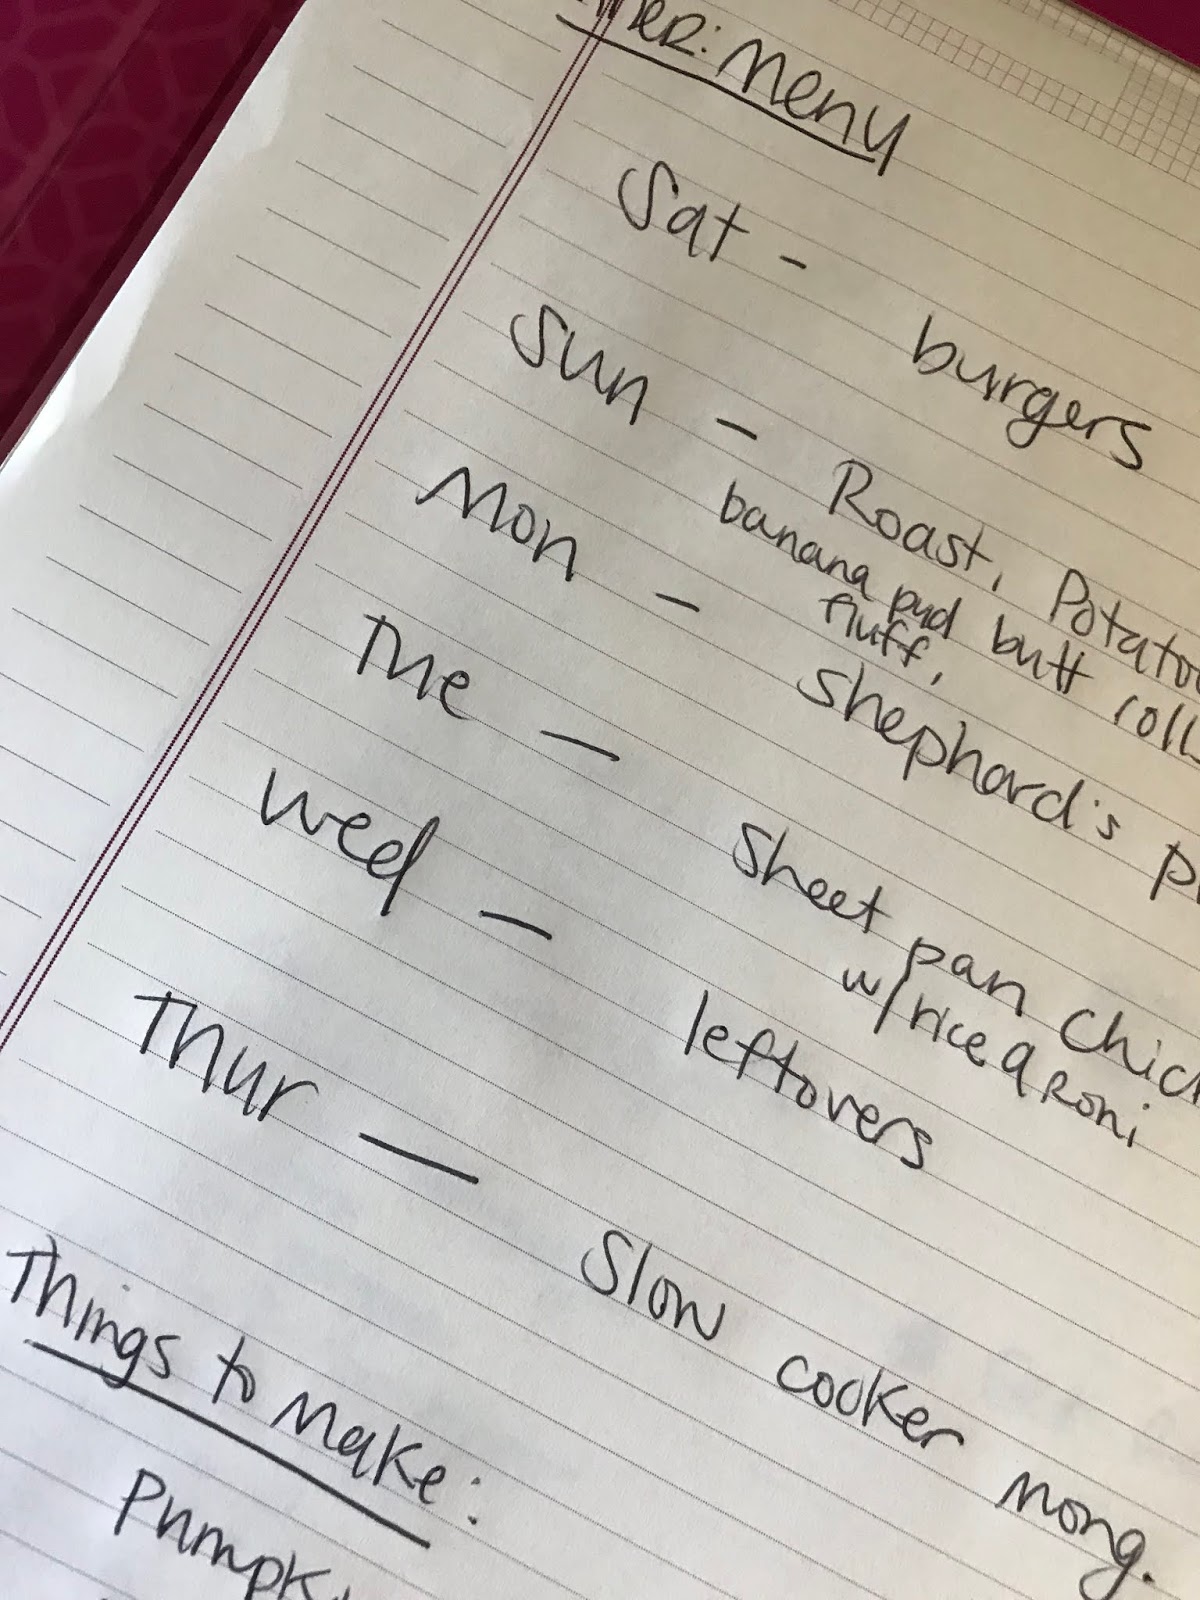 Menu
Sat - burgers
Sun - Roast, Potatoe
banana pud butt rolls
fluff,
Mon - shephard's
Tue - Sheet pan Chick
w/rice a Roni
Wed - leftovers
Thur - Slow cooker mong.
Things to Make: